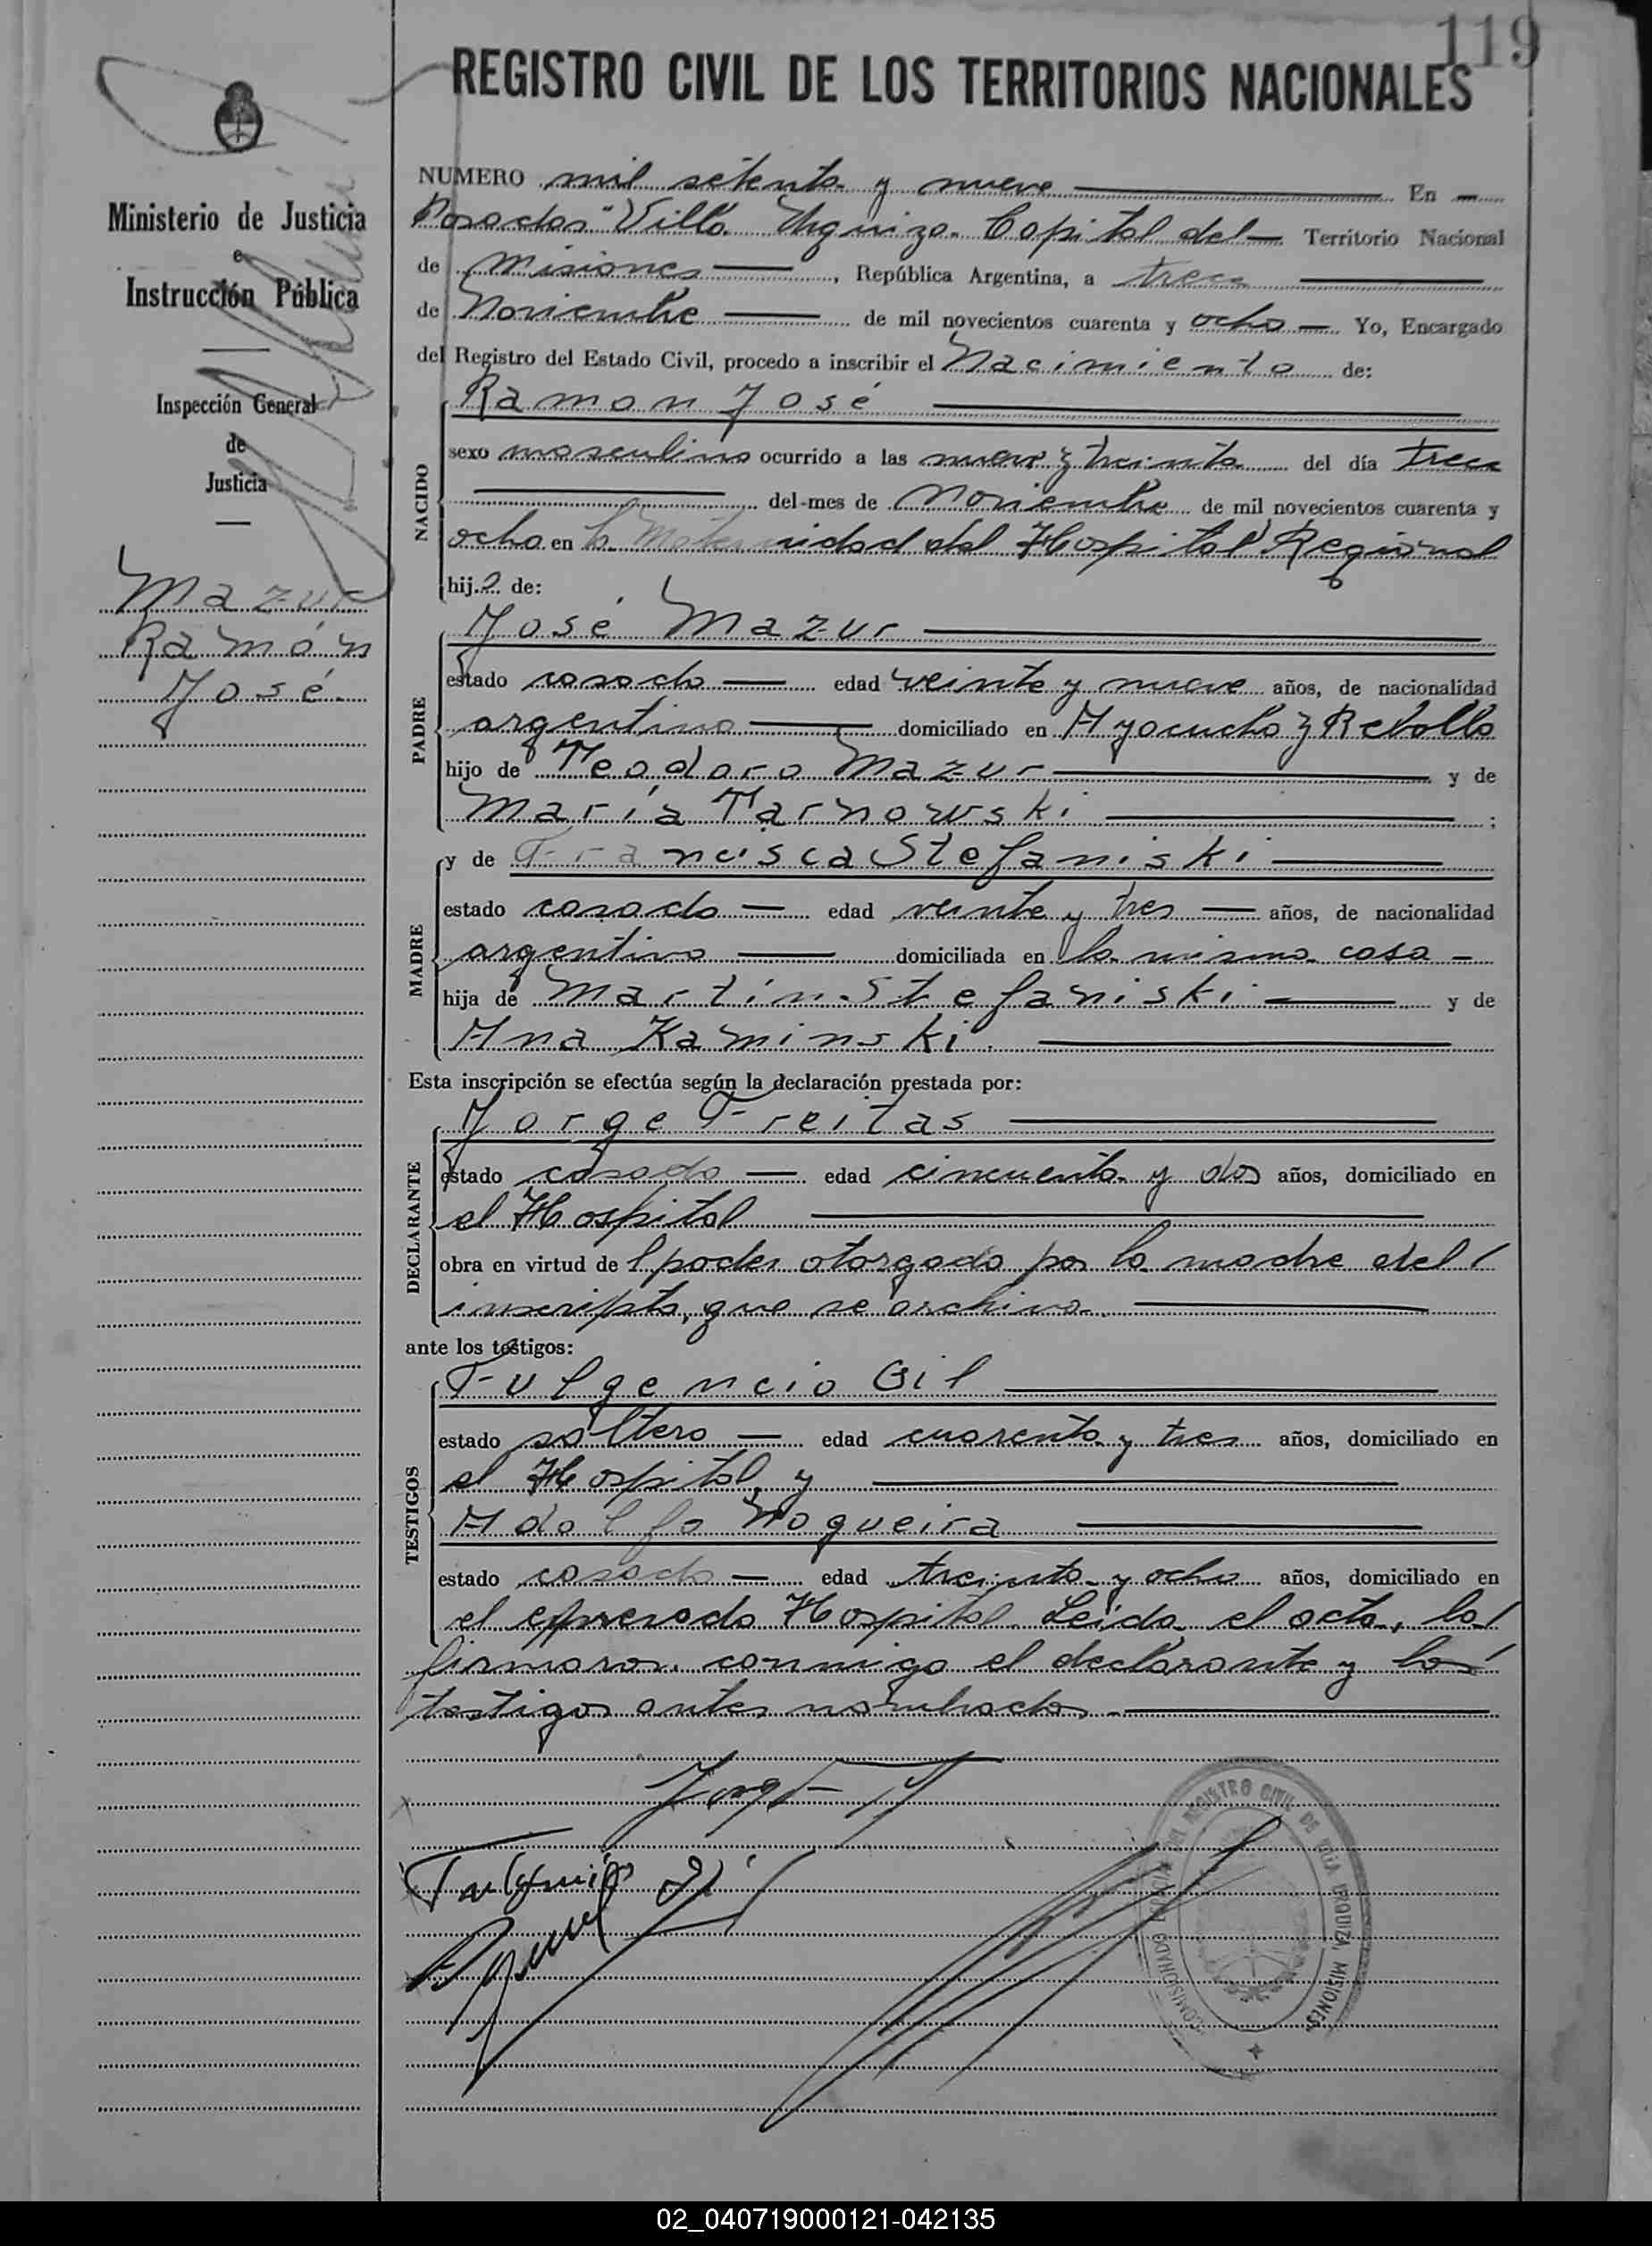 119
REGISTRO CIVIL DE LOS TERRITORIOS NACIONALES
Ministerio de Justicia
e
Instrucción Pública
Inspección General
de
Justicia
Mazur
Ramón
José.
NUMERO mil setenta y nueve En
Posadas "Villa Urquiza. Capital del Territorio Nacional
de Misiones, República Argentina, a trece
de Noviembre de mil novecientos cuarenta y ocho Yo, Encargado
del Registro del Estado Civil, procedo a inscribir el Nacimiento de:
NACIDO
Ramon José
sexo masculino ocurrido a las nueve y treinta del día trece
del mes de Noviembre de mil novecientos cuarenta y
ocho en la Maternidad del Hospital Regional
hijo de:
PADRE
José Mazur
estado casado edad veinte y nueve años, de nacionalidad
argentina domiciliado en Ayacucho y Rebollo
hijo de Teodoro Mazur y de
María Tarnowski ;
MADRE
y de Francisca Stefaniski
estado casada edad veinte y tres años, de nacionalidad
argentina domiciliada en la misma casa
hija de Martín Stefaniski y de
Ana Kaminski.
Esta inscripción se efectúa según la declaración prestada por:
DECLARANTE
Jorge Freitas
estado casado edad cincuenta y dos años, domiciliado en
el Hospital
obra en virtud de l poder otorgado por la madre del
inscripto, que se archiva.
ante los testigos:
TESTIGOS
Fulgencio Gil
estado soltero edad cuarenta y tres años, domiciliado en
el Hospital y
Adolfo Nogueira
estado casado edad treinta y ocho años, domiciliado en
el expresado Hospital. Leida el acta, la
firmaron conmigo el declarante y los
testigos antes nombrados.
DEL REGISTRO CIVIL DE VILLA URQUIZA, MISIONES.
02_040719000121-042135